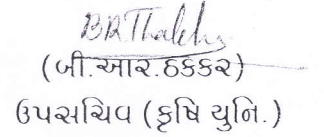 B R Thakkar
(બી.આર.ઠકકર)
ઉપસચિવ (કૃષિ યુનિ.)